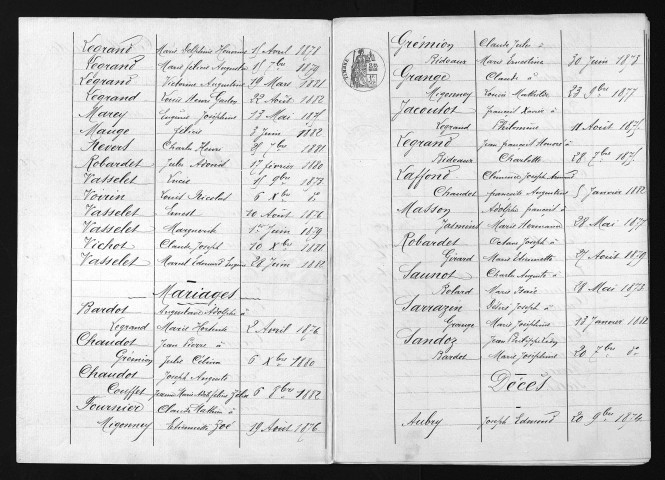 Legrand Marie Delphine Honorine 15 Avril 1878
Legrand Marie Félicie Augustine 15 7bre 1879
Legrand Victorine Augustine 19 Mars 1881
Legrand Louis Henri Gaston 22 Août 1882
Marey Eugénie Joséphine 13 Mai 1875
Mauge Félicie 3 Juin 1882
Prevers Charles Henri 7bre 1881
Robardet Jules 17 février 1880
Vasselet Lucie 15 9bre 1873
Voirin Louis Nicolas 6 Xbre do
Vasselet Ernest 10 Août 1876
Vasselet Marguerite 1er Juin 1879
Vichot Claude Joseph 10 Xbre 1881
Vasselet Marcel Edouard Eugène 28 Juin 1882
Mariages
Bardot Adolphe à
Legrand Marie Hortense 2 Avril 1876
Chaudot Jean Pierre à
Grémion Julie Célina 6 Xbre 1880
Chaudot Joseph Auguste
Couffet Jeanne Marie 6 8bre 1882
Fournier Claude à
Migonney Etiennette Zoé 19 Août 1876
TIMBRE
Grémion Claude Jules à
Bideaux Marie Ernestine 30 Juin 1873
Grange Claude à
Migonney Louise Mathilde 23 9bre 1877
Jacoutot François Xavier à
Legrand Philomène 11 Août 1875
Legrand Jean François Honoré à
Bideaux Charlotte 28 7bre 1875
Laffond Joseph
Chaudot Françoise Augustine 5 Janvier 1882
Masson Adolphe François à
Marie Hermance 28 Mai 1877
Robardet Octave Joseph à
Girard Marie Etiennette 27 Août 1879
Saunot Charles Auguste à
Marie 28 Mai 1873
Sarrazin Désiré Joseph à
Grange Marie Joséphine 13 Janvier 1882
Sandoz Jean
Bardot Marie Joséphine 20 7bre do
Décès
Aubry Joseph Edmond 20 9bre 1874